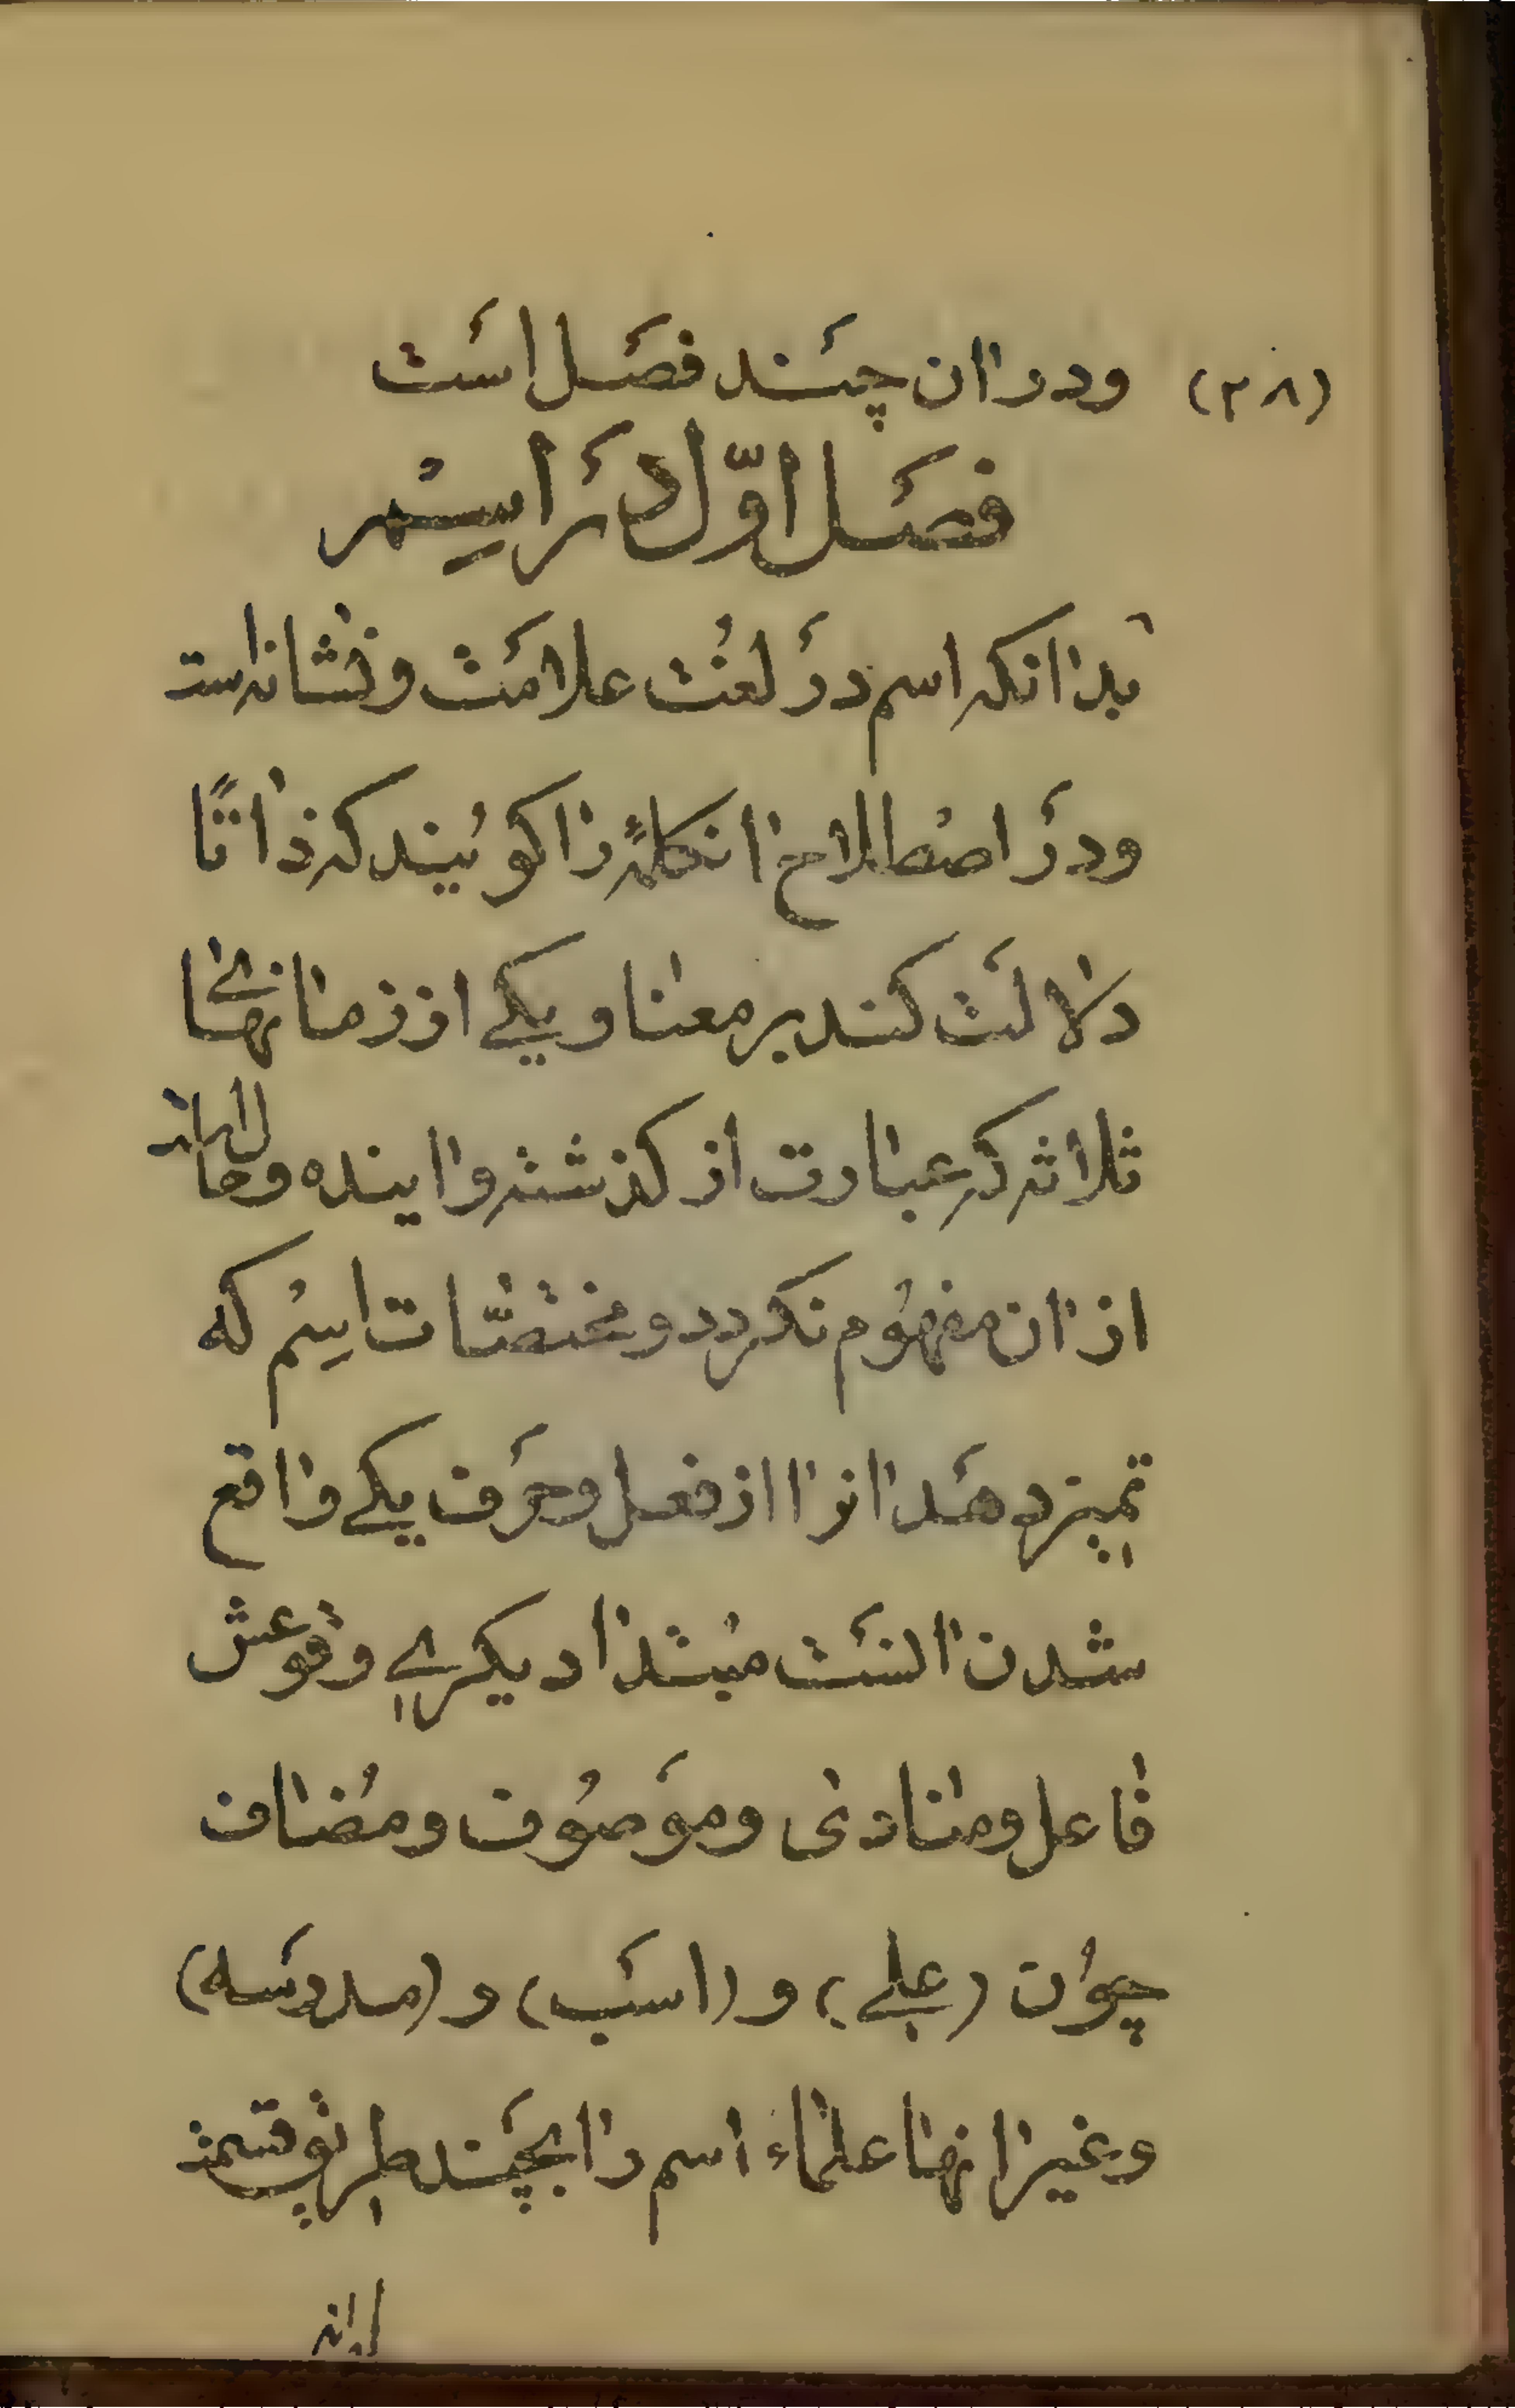 (۲۸) ودر ان چَند فصَل اسَت
فصَل اوّل دَر اسِمْ
بدانکه اسم دَر لغُت علامَت و نشانه است
ودَر اصْطلاح انکلمهٔ را کویُند که ذاتًا
دلالَت کند بر معنا و یکی از زمانهای
ثلاثه که عبارت از کذشته و اینده و حال است
از ان مفهوُم نکردد و مختصّات اسِمْ که
تمیز دهَد انرا از فعل و حَرف یکی واقع
شدن السَت مبُتدا دیکری وقوعش
فاعل و منادی و مَوصوُف و مُضاف
چوُن (علی) و (اسَب) و (مدرسَه)
و غیر انها علماء اسم را بچَند طریق قسمت